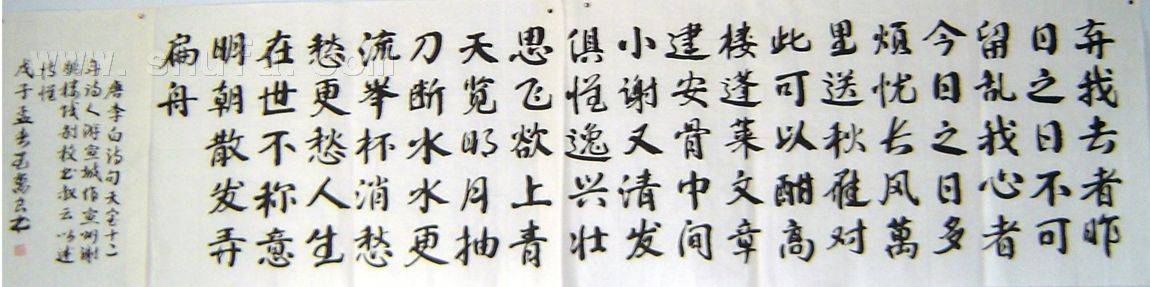 弃我去者昨
日之日不可
留乱我心者
今日之日多
烦忧长风萬
里送秋雁对
此可以酣高
楼蓬莱文章
建安骨中间
小谢又清发
俱怀逸兴壮
思飞欲上青
天览明月抽
刀断水水更
流举杯消愁
愁更愁人生
在世不称意
明朝散发弄
扁舟
唐李白诗句天宝十二
年诗人游宣城作宣州谢
朓楼饯别校书叔云以述
情怀
戊子孟春
www.shufa.com